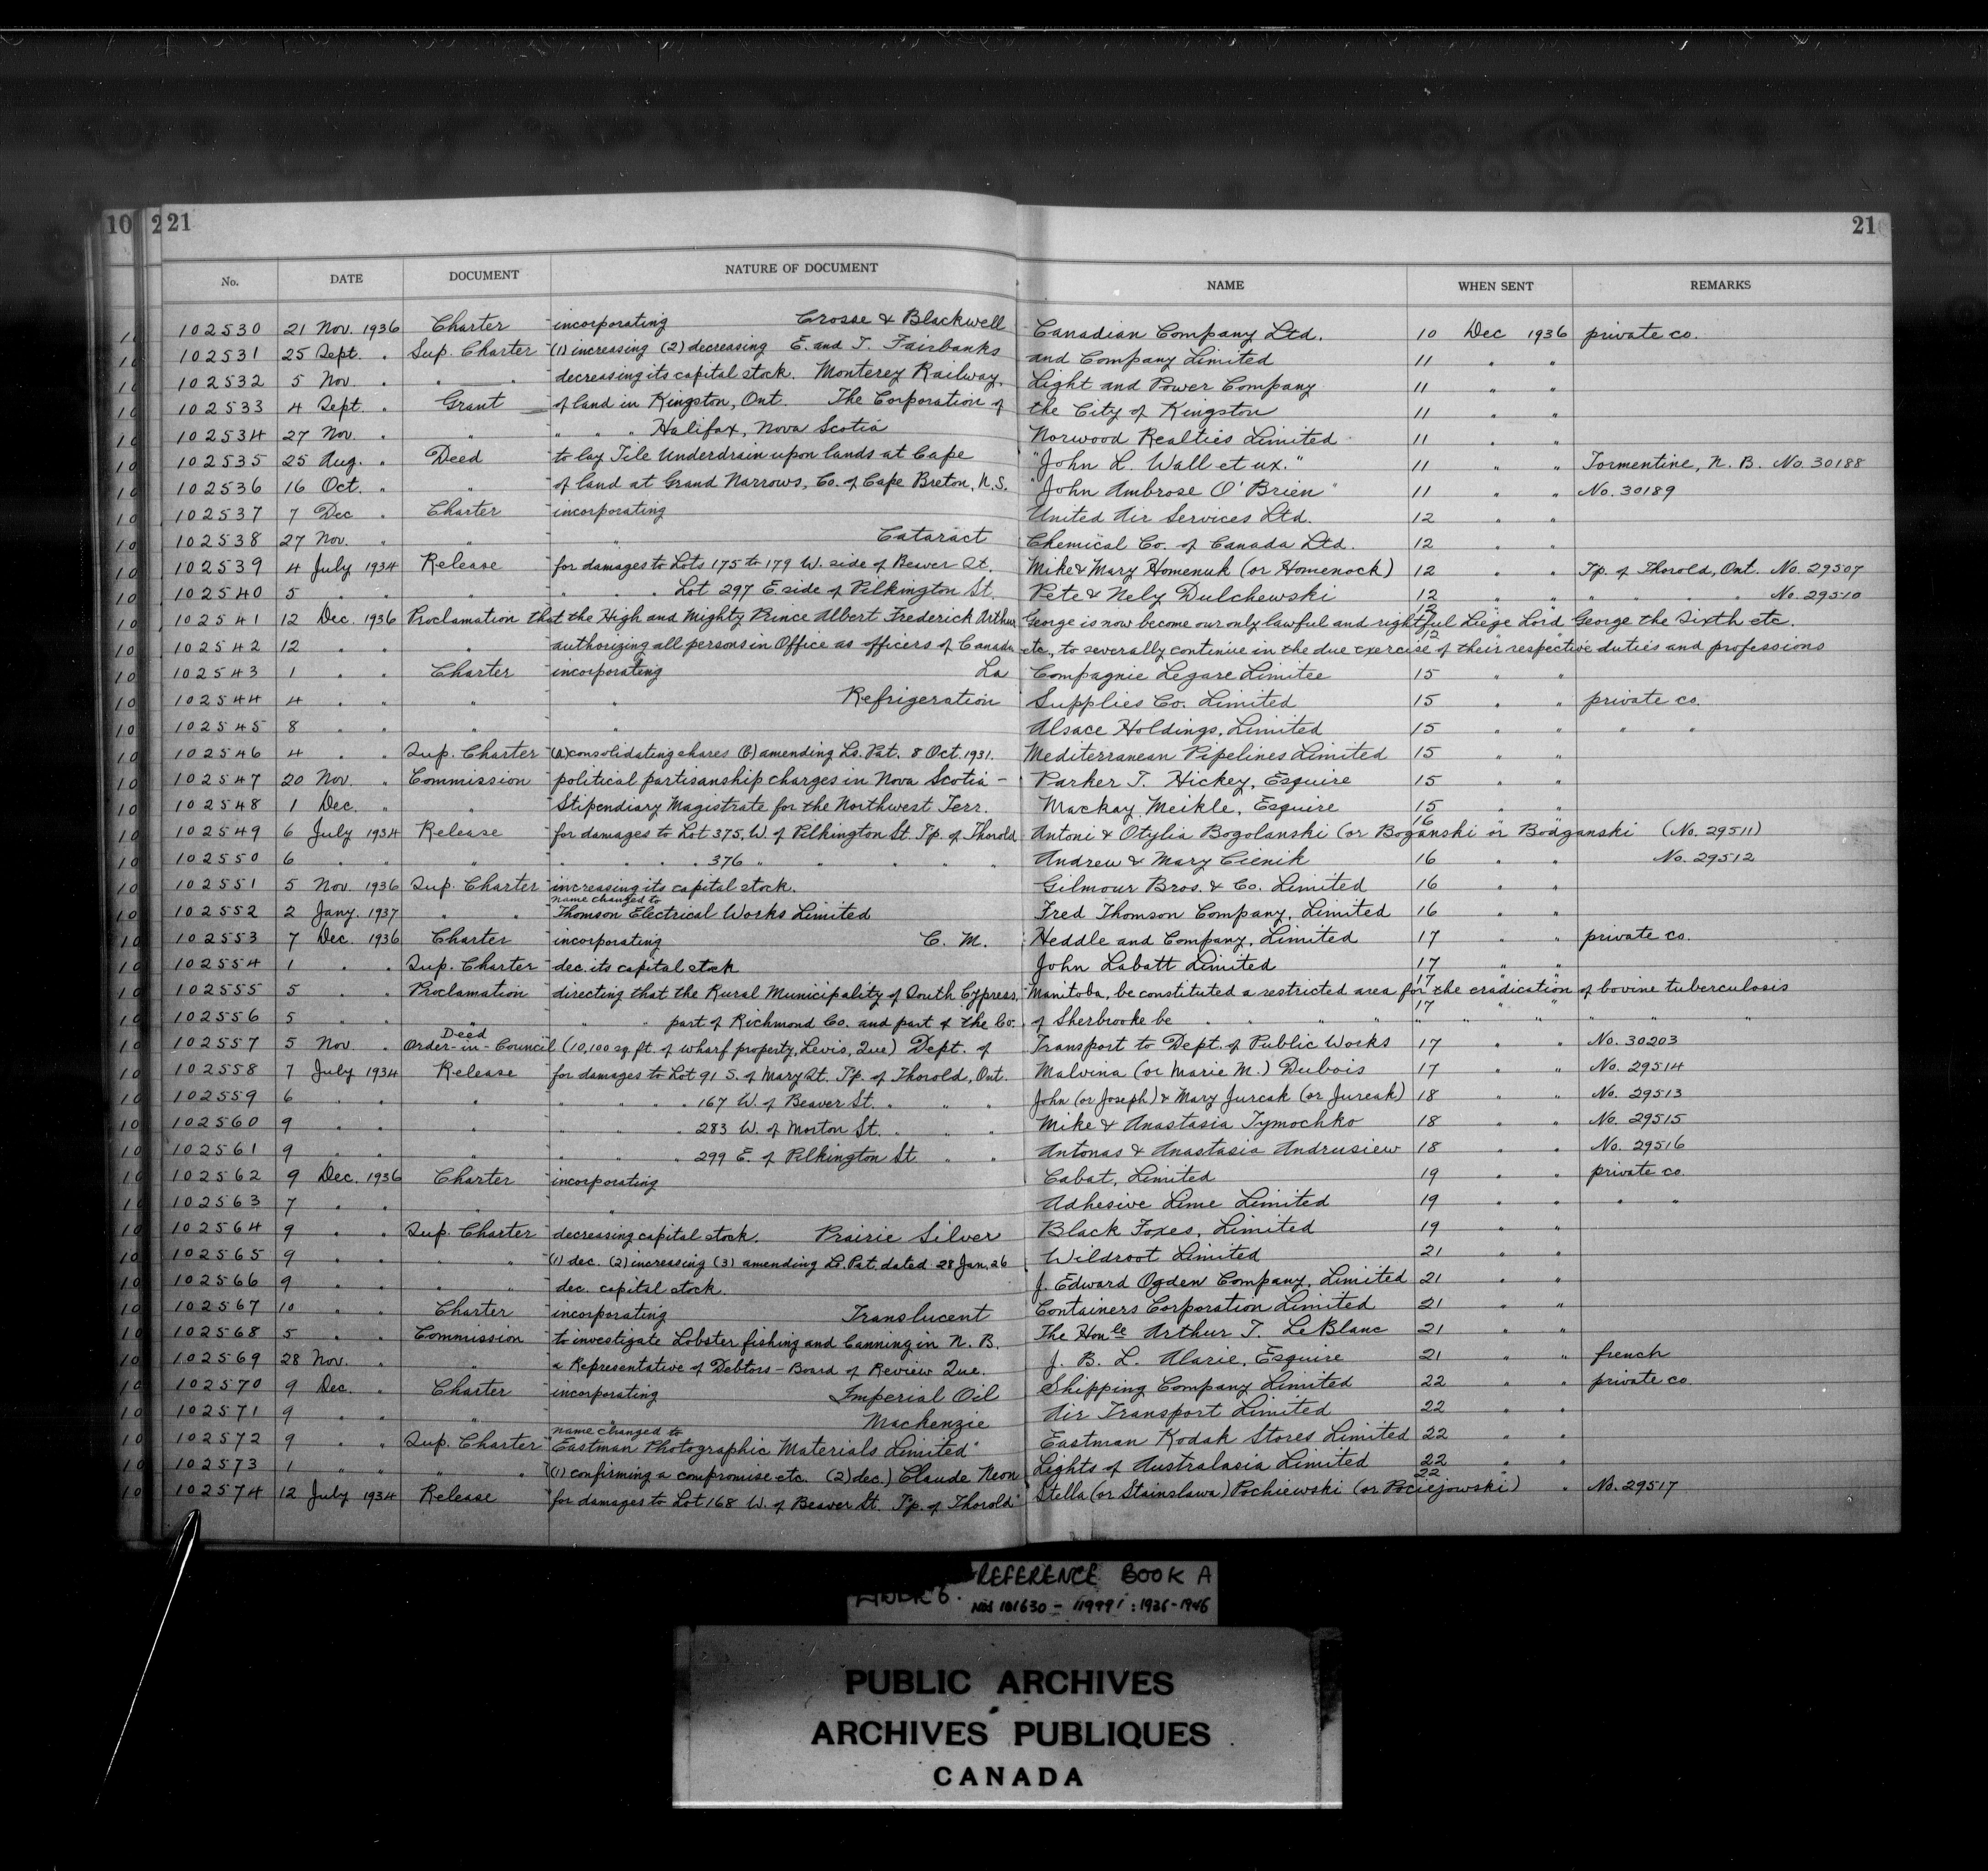 10 2 21 21
No. DATE DOCUMENT NATURE OF DOCUMENT NAME WHEN SENT REMARKS
102530 21 Nov. 1936 Charter incorporating Crosse & Blackwell Canadian Company Ltd. 10 Dec 1936 private co.
102531 25 Sept. " Sup. Charter (1) increasing (2) decreasing E. and T. Fairbanks and Company Limited 11 " "
102532 5 Nov. " " " decreasing its capital stock. Monterey Railway, Light and Power Company 11 " "
102533 4 Sept. " Grant of land in Kingston, Ont. The Corporation of the City of Kingston 11 " "
102534 27 Nov. " " " " " Halifax, Nova Scotia Norwood Realties Limited 11 " "
102535 25 Aug. " Deed to lay Tile Underdrain upon lands at Cape "John L. Wall et ux." 11 " " Tormentine, N. B. No. 30188
102536 16 Oct. " " of land at Grand Narrows, Co. of Cape Breton, N.S. "John Ambrose O'Brien" 11 " " No. 30189
102537 7 Dec " Charter incorporating United Air Services Ltd. 12 " "
102538 27 Nov. " " " Cataract Chemical Co. of Canada Ltd. 12 " "
102539 4 July 1934 Release for damages to Lots 175 to 179 W. side of Beaver St. Mike & Mary Homenuk (or Homenock) 12 " " Tp. of Thorold, Ont. No. 29507
102540 5 " " " " " " Lot 297 E. side of Pilkington St. Pete & Nely Dulchewski 12 " " " " " " No. 29510
102541 12 Dec. 1936 Proclamation that the High and Mighty Prince Albert Frederick Arthur George is now become our only lawful and rightful Liege Lord George the Sixth etc. 12 " "
102542 12 " " " authorizing all persons in Office as officers of Canada etc., to severally continue in the due exercise of their respective duties and professions 12 " "
102543 1 " " Charter incorporating La Compagnie Legare Limitee 15 " "
102544 4 " " " " Refrigeration Supplies Co. Limited 15 " " private co.
102545 8 " " " " Alsace Holdings, Limited 15 " " " "
102546 4 " " Sup. Charter (a) consolidating shares (b) amending Ls. Pat. 8 Oct. 1931. Mediterranean Pipelines Limited 15 " "
102547 20 Nov. " Commission political partisanship charges in Nova Scotia - Parker T. Hickey, Esquire 15 " "
102548 1 Dec. " " Stipendiary Magistrate for the Northwest Terr. Mackay Meikle, Esquire 15 " "
102549 6 July 1934 Release for damages to Lot 375, W. of Pilkington St. Tp. of Thorold Antoni & Otylia Bogolanski (or Boganski or Bodganski (No. 29511) 16 " "
102550 6 " " " " " " " 376 " " " " " Andrew & Mary Cienik 16 " " No. 29512
102551 5 Nov. 1936 Sup. Charter increasing its capital stock. Gilmour Bros. & Co. Limited 16 " "
name changed to
102552 2 Jany. 1937 " " Thomson Electrical Works Limited Fred Thomson Company, Limited 16 " "
102553 7 Dec. 1936 Charter incorporating C. M. Heddle and Company, Limited 17 " " private co.
102554 1 " " Sup. Charter dec. its capital stock John Labatt Limited 17 " "
102555 5 " " Proclamation directing that the Rural Municipality of South Cypress, Manitoba, be constituted a restricted area for the eradication of bovine tuberculosis 17 " "
102556 5 " " " " " part of Richmond Co. and part of the Co. of Sherbrooke be " " " " 17 " " " " "
Deed
102557 5 Nov. " Order-in-Council (10,100 sq. ft. of wharf property, Levis, Que) Dept. of Transport to Dept. of Public Works 17 " " No. 30203
102558 7 July 1934 Release for damages to Lot 91 S. of Mary St. Tp. of Thorold, Ont. Malvina (or Marie M.) Dubois 17 " " No. 29514
102559 6 " " " " " " " 167 W. of Beaver St. " " " John (or Joseph) & Mary Jurcak (or Jureak) 18 " " No. 29513
102560 9 " " " " " " " 283 W. of Morton St. " " " Mike & Anastasia Tymochko 18 " " No. 29515
102561 9 " " " " " " " 299 E. of Pilkington St. " " Antonas & Anastasia Andrusiew 18 " " No. 29516
102562 9 Dec. 1936 Charter incorporating Cabat, Limited 19 " " private co.
102563 7 " " " " Adhesive Lime Limited 19 " " " "
102564 9 " " Sup. Charter decreasing capital stock. Prairie Silver Black Foxes, Limited 19 " "
102565 9 " " " " (1) dec. (2) increasing (3) amending Ls. Pat. dated 28 Jan. 26 Wildroot Limited 21 " "
102566 9 " " " " dec. capital stock. J. Edward Ogden Company, Limited 21 " "
102567 10 " " Charter incorporating Translucent Containers Corporation Limited 21 " "
102568 5 " " Commission to investigate Lobster fishing and Canning in N. B. The Honle Arthur T. LeBlanc 21 " "
102569 28 Nov. " " a Representative of Debtors - Board of Review Que. J. B. L. Alarie, Esquire 21 " " french
102570 9 Dec. " Charter incorporating Imperial Oil Shipping Company Limited 22 " " private co.
102571 9 " " " " Mackenzie Air Transport Limited 22 " "
name changed to
102572 9 " " Sup. Charter "Eastman Photographic Materials Limited" Eastman Kodak Stores Limited 22 " "
102573 1 " " " " ((1) confirming a compromise etc. (2) dec.) Claude Neon Lights of Australasia Limited 22 " "
102574 12 July 1934 Release "for damages to Lot 168 W. of Beaver St. Tp. of Thorold" Stella (or Stainslawa) Pochiewski (or Pociejowski) 22 " " No. 29517
REFERENCE BOOK A
Nos 101630 - 119991 : 1936-1946
PUBLIC ARCHIVES
ARCHIVES PUBLIQUES
CANADA